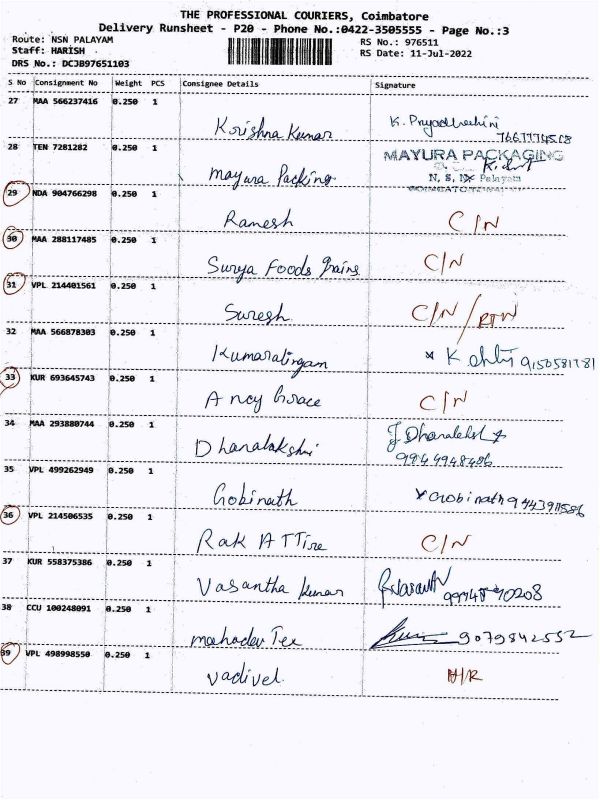 THE PROFESSIONAL COURIERS, Coimbatore
Delivery Runsheet - P20 - Phone No.:0422-3505555 - Page No.:3
Route: NSN PALAYAM RS No.: 976511
Staff: HARISH RS Date: 11-Jul-2022
DRS No.: DCJB97651103
S No Consignment No Weight PCS Consignee Details Signature
27 MAA 566237416 0.250 1
Krishna Kumar K. Priyadharhini
28 TEN 7281282 0.250 1
MAYURA PACKAGING
Mayura Packing N. S. N. Palayam
29 NDA 904766298 0.250 1
Ramesh C/N
30 MAA 288117485 0.250 1
Surya Foods grains C/N
31 VPL 214401561 0.250 1
Suresh C/N/RTN
32 MAA 566878303 0.250 1
Kumaralingam
33 KUR 693645743 0.250 1
Ancy Grace C/N
34 MAA 293880744 0.250 1
Dhanalakshmi
9944948486
35 VPL 499262949 0.250 1
Gobinath Gobinath
36 VPL 214506535 0.250 1
Rak ATTire C/N
37 KUR 558375386 0.250 1
Vasantha Kumar
38 CCU 100248091 0.250 1
mahadev Tex 9079842552
39 VPL 498998550 0.250 1
Vadivel